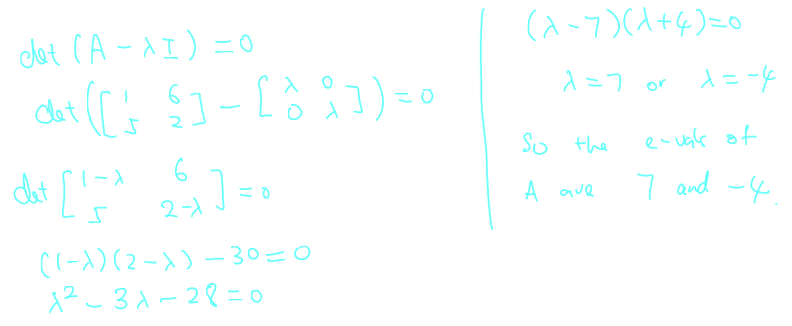 det (A - λI) = 0
det([1 6 5 2] - [λ 0 0 λ]) = 0
det [1-λ 6 5 2-λ] = 0
(1-λ)(2-λ) - 30 = 0
λ² - 3λ - 28 = 0
(λ-7)(λ+4)=0
λ=7 or λ=-4
So the e-vals of
A are 7 and -4.